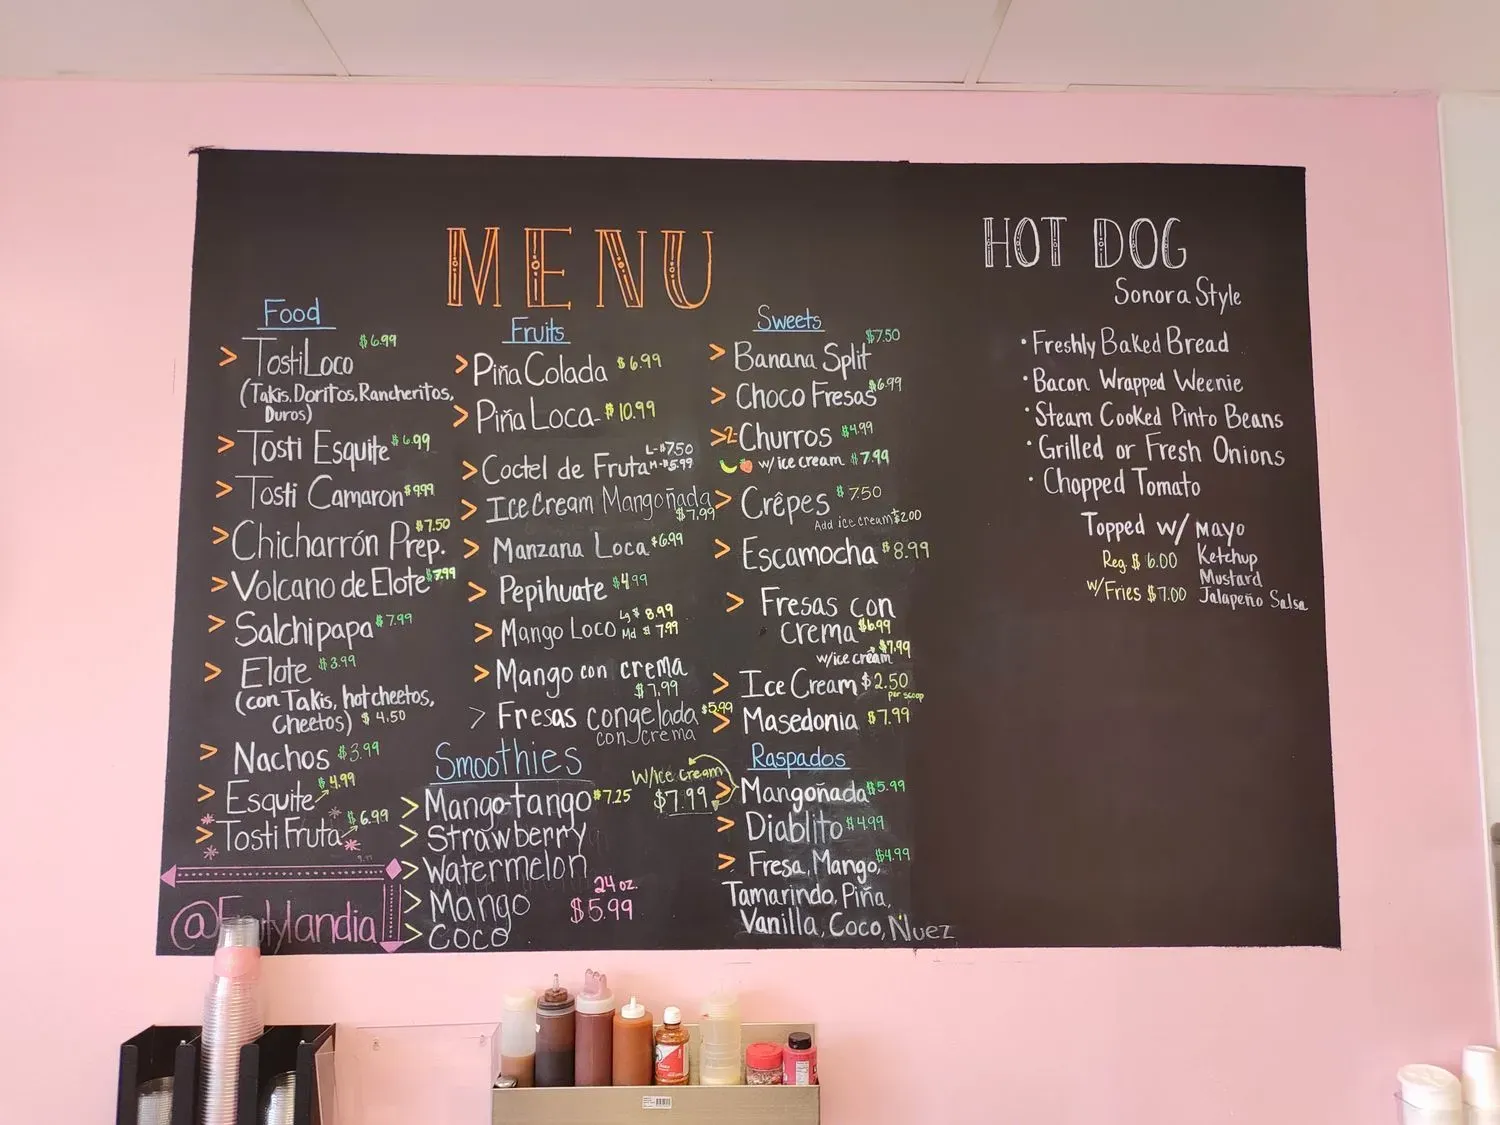 MENU
Food
TostiLoco $6.99
(Takis, Doritos, Rancheritos,
Duros)
Tosti Esquite $6.99
Tosti Camaron $9.99
Chicharrón Prep. $7.50
Volcano de Elote $7.99
Salchipapa $7.99
Elote $3.99
(con Takis, hot cheetos,
Cheetos) $4.50
Nachos $3.99
Esquite $4.99
Tosti Fruta $6.99
Fruits
Piña Colada $6.99
Piña Loca - $10.99
Coctel de Fruta L-$7.50
M-$5.99
Ice Cream Mangoñada
$7.99
Manzana Loca $6.99
Pepihuate $4.99
Mango Loco Lg $8.99
Md $7.99
Mango con crema
$7.99
Fresas congelada $5.99
con crema
Smoothies
Mango-tango $7.25
Strawberry
Watermelon
Mango
Coco
24 oz.
$5.99
Sweets
Banana Split $7.50
Choco Fresas $6.99
2-Churros $4.99
w/ice cream $7.99
Crêpes $7.50
Add ice cream $2.00
Escamocha $8.99
Fresas con
crema $6.99
w/ice cream $7.99
Ice Cream $2.50
per scoop
Masedonia $7.99
Raspados
W/Ice cream
$7.99
Mangoñada $5.99
Diablito $4.99
Fresa, Mango, $4.99
Tamarindo, Piña,
Vanilla, Coco, Nuez
HOT DOG
Sonora Style
• Freshly Baked Bread
• Bacon Wrapped Weenie
• Steam Cooked Pinto Beans
• Grilled or Fresh Onions
• Chopped Tomato
Topped w/ Mayo
Ketchup
Mustard
Jalapeño Salsa
Reg $6.00
w/Fries $7.00